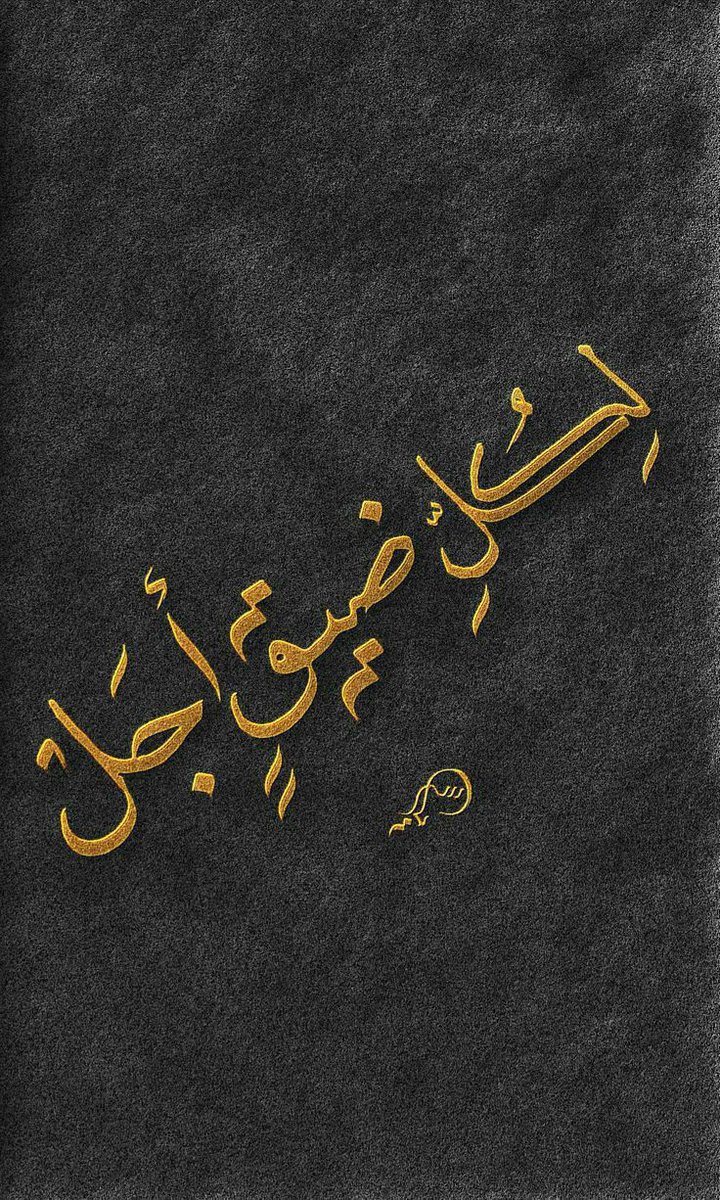 لِكُلِّ ضيقٍ أجَلْ